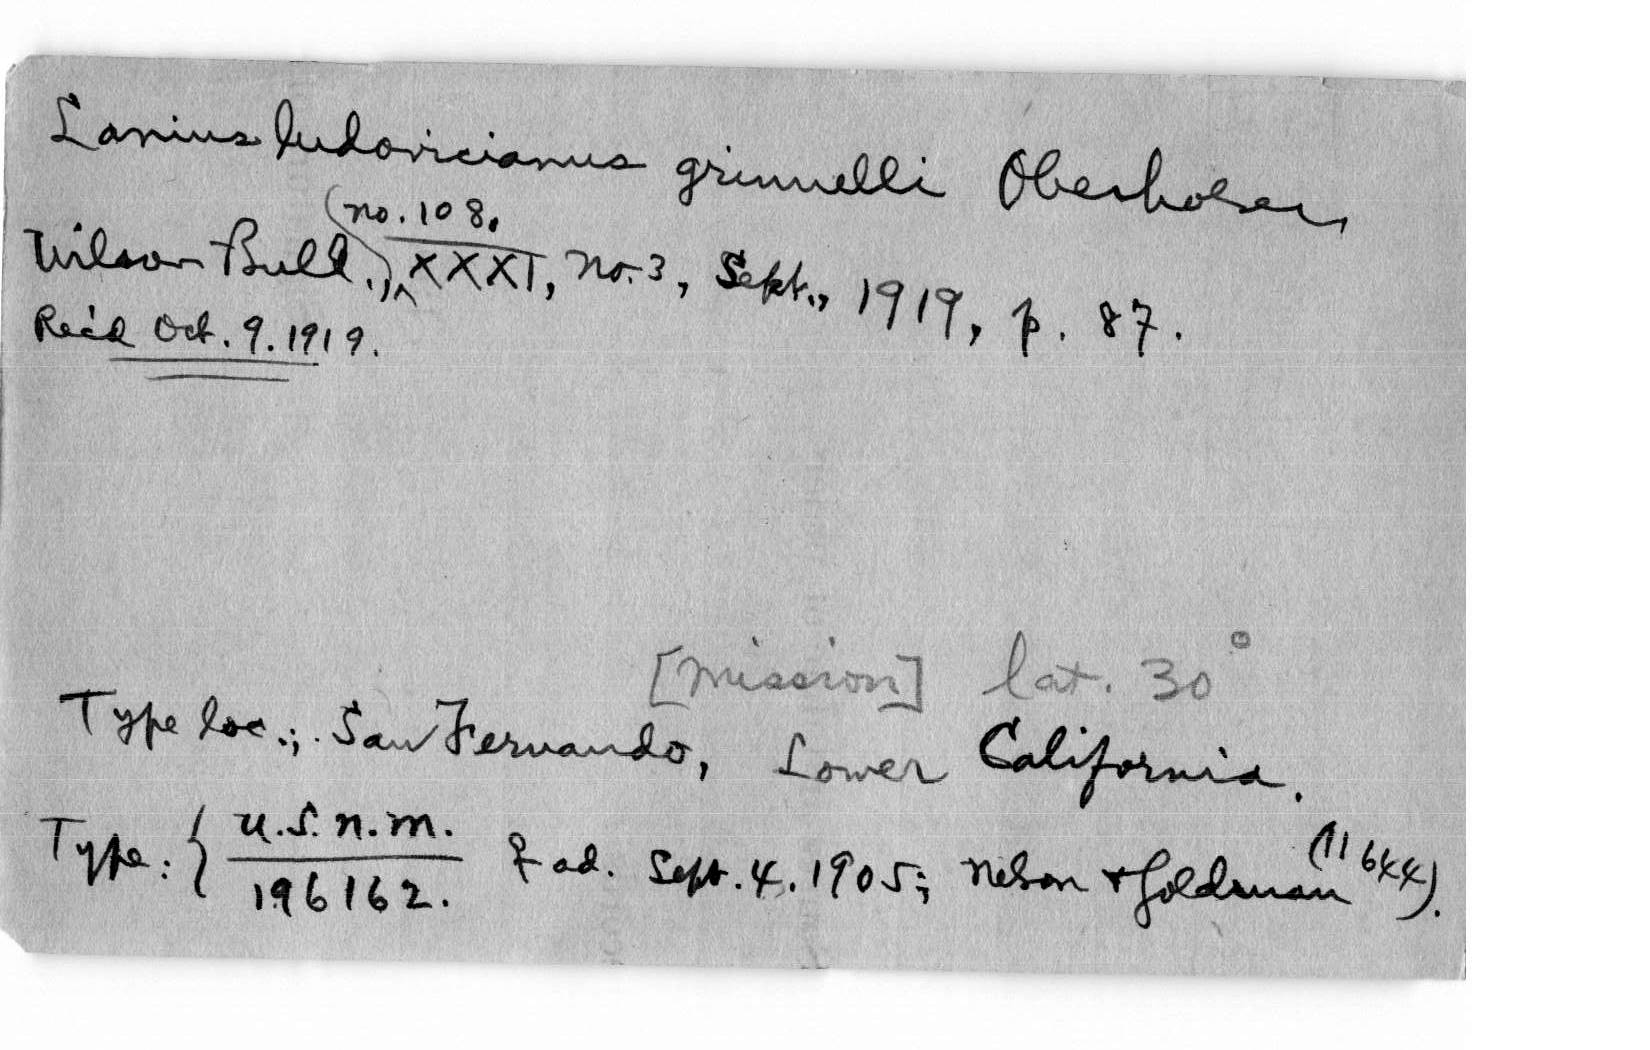 Lanius ludovicianus grinnelli Oberholser,
(no. 108.
Wilson Bull.,) ^ XXXI, no. 3, Sept., 1919, p. 87.
Rec'd Oct. 9. 1919.
[Mission] lat. 30°
Type loc.; San Fernando, Lower California.
Type: { U.S.N.M. ♀ ad. Sept. 4. 1905; Nelson & Goldman (11644).
196162.